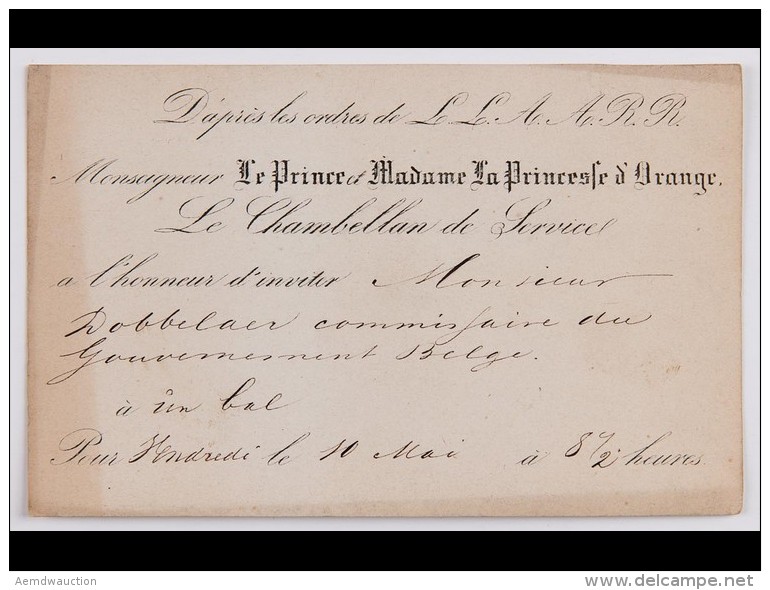 D'après les ordres de L.L.A.A.R.R.
Monseigneur Le Prince et Madame La Princesse d'Orange.
Le Chambellan de Service
a l'honneur d'inviter Monsieur
Dobbelaer commissaire du
Gouvernement Belge.
à un bal
Pour Vendredi le 10 Mai à 8 1/2 heures.
Aemdwauction
delcampe.net